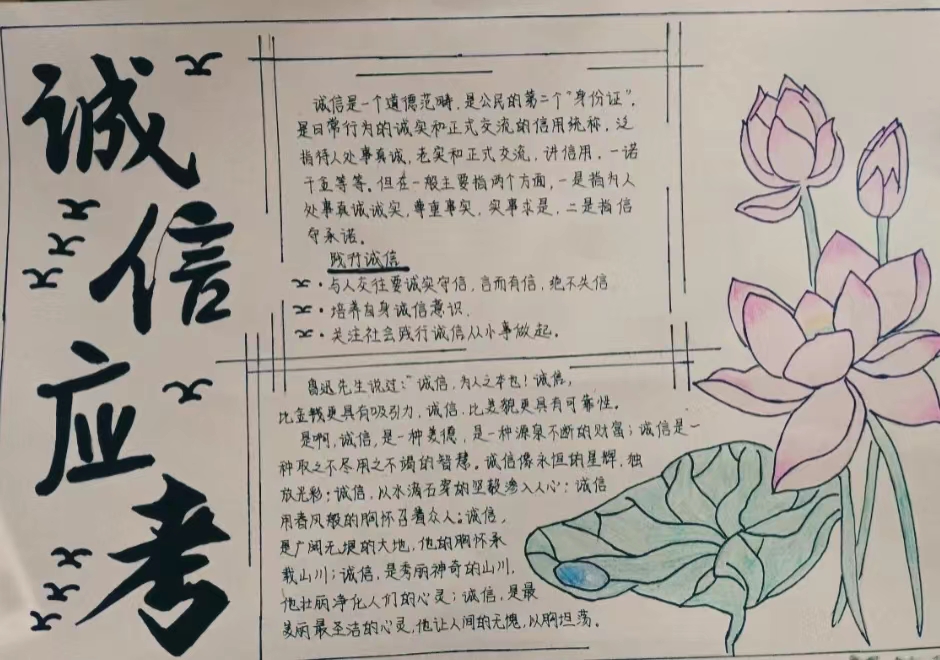 诚
信
应
考
诚信是一个道德范畴，是公民的第二个“身份证”。
是日常行为的诚实和正式交流的信用统称，泛
指待人处事真诚、老实和正式交流，讲信用，一诺
千金等等。但在一般主要指两个方面，一是指为人
处事真诚诚实，尊重事实，实事求是，二是指信
守承诺。
践行诚信
·与人交往要诚实守信，言而有信，绝不失信
·培养自身诚信意识．
·关注社会践行诚信从小事做起。
鲁迅先生说过：“诚信，为人之本也！诚信，
比金钱更具有吸引力，诚信．比美貌更具有可靠性。
是啊，诚信，是一种美德，是一种源泉不断的财富；诚信是一
种取之不尽用之不竭的智慧。诚信像永恒的星辉，独
放光彩；诚信，从水滴石穿的坚毅渗入人心；诚信
用春风般的胸怀召着众人。诚信，
是广阔无垠的大地，他的胸怀承
载山川；诚信，是秀丽神奇的山川，
他壮丽净化人们的心灵；诚信，是最
美丽最圣洁的心灵，他让人间的无愧，以胸坦荡。